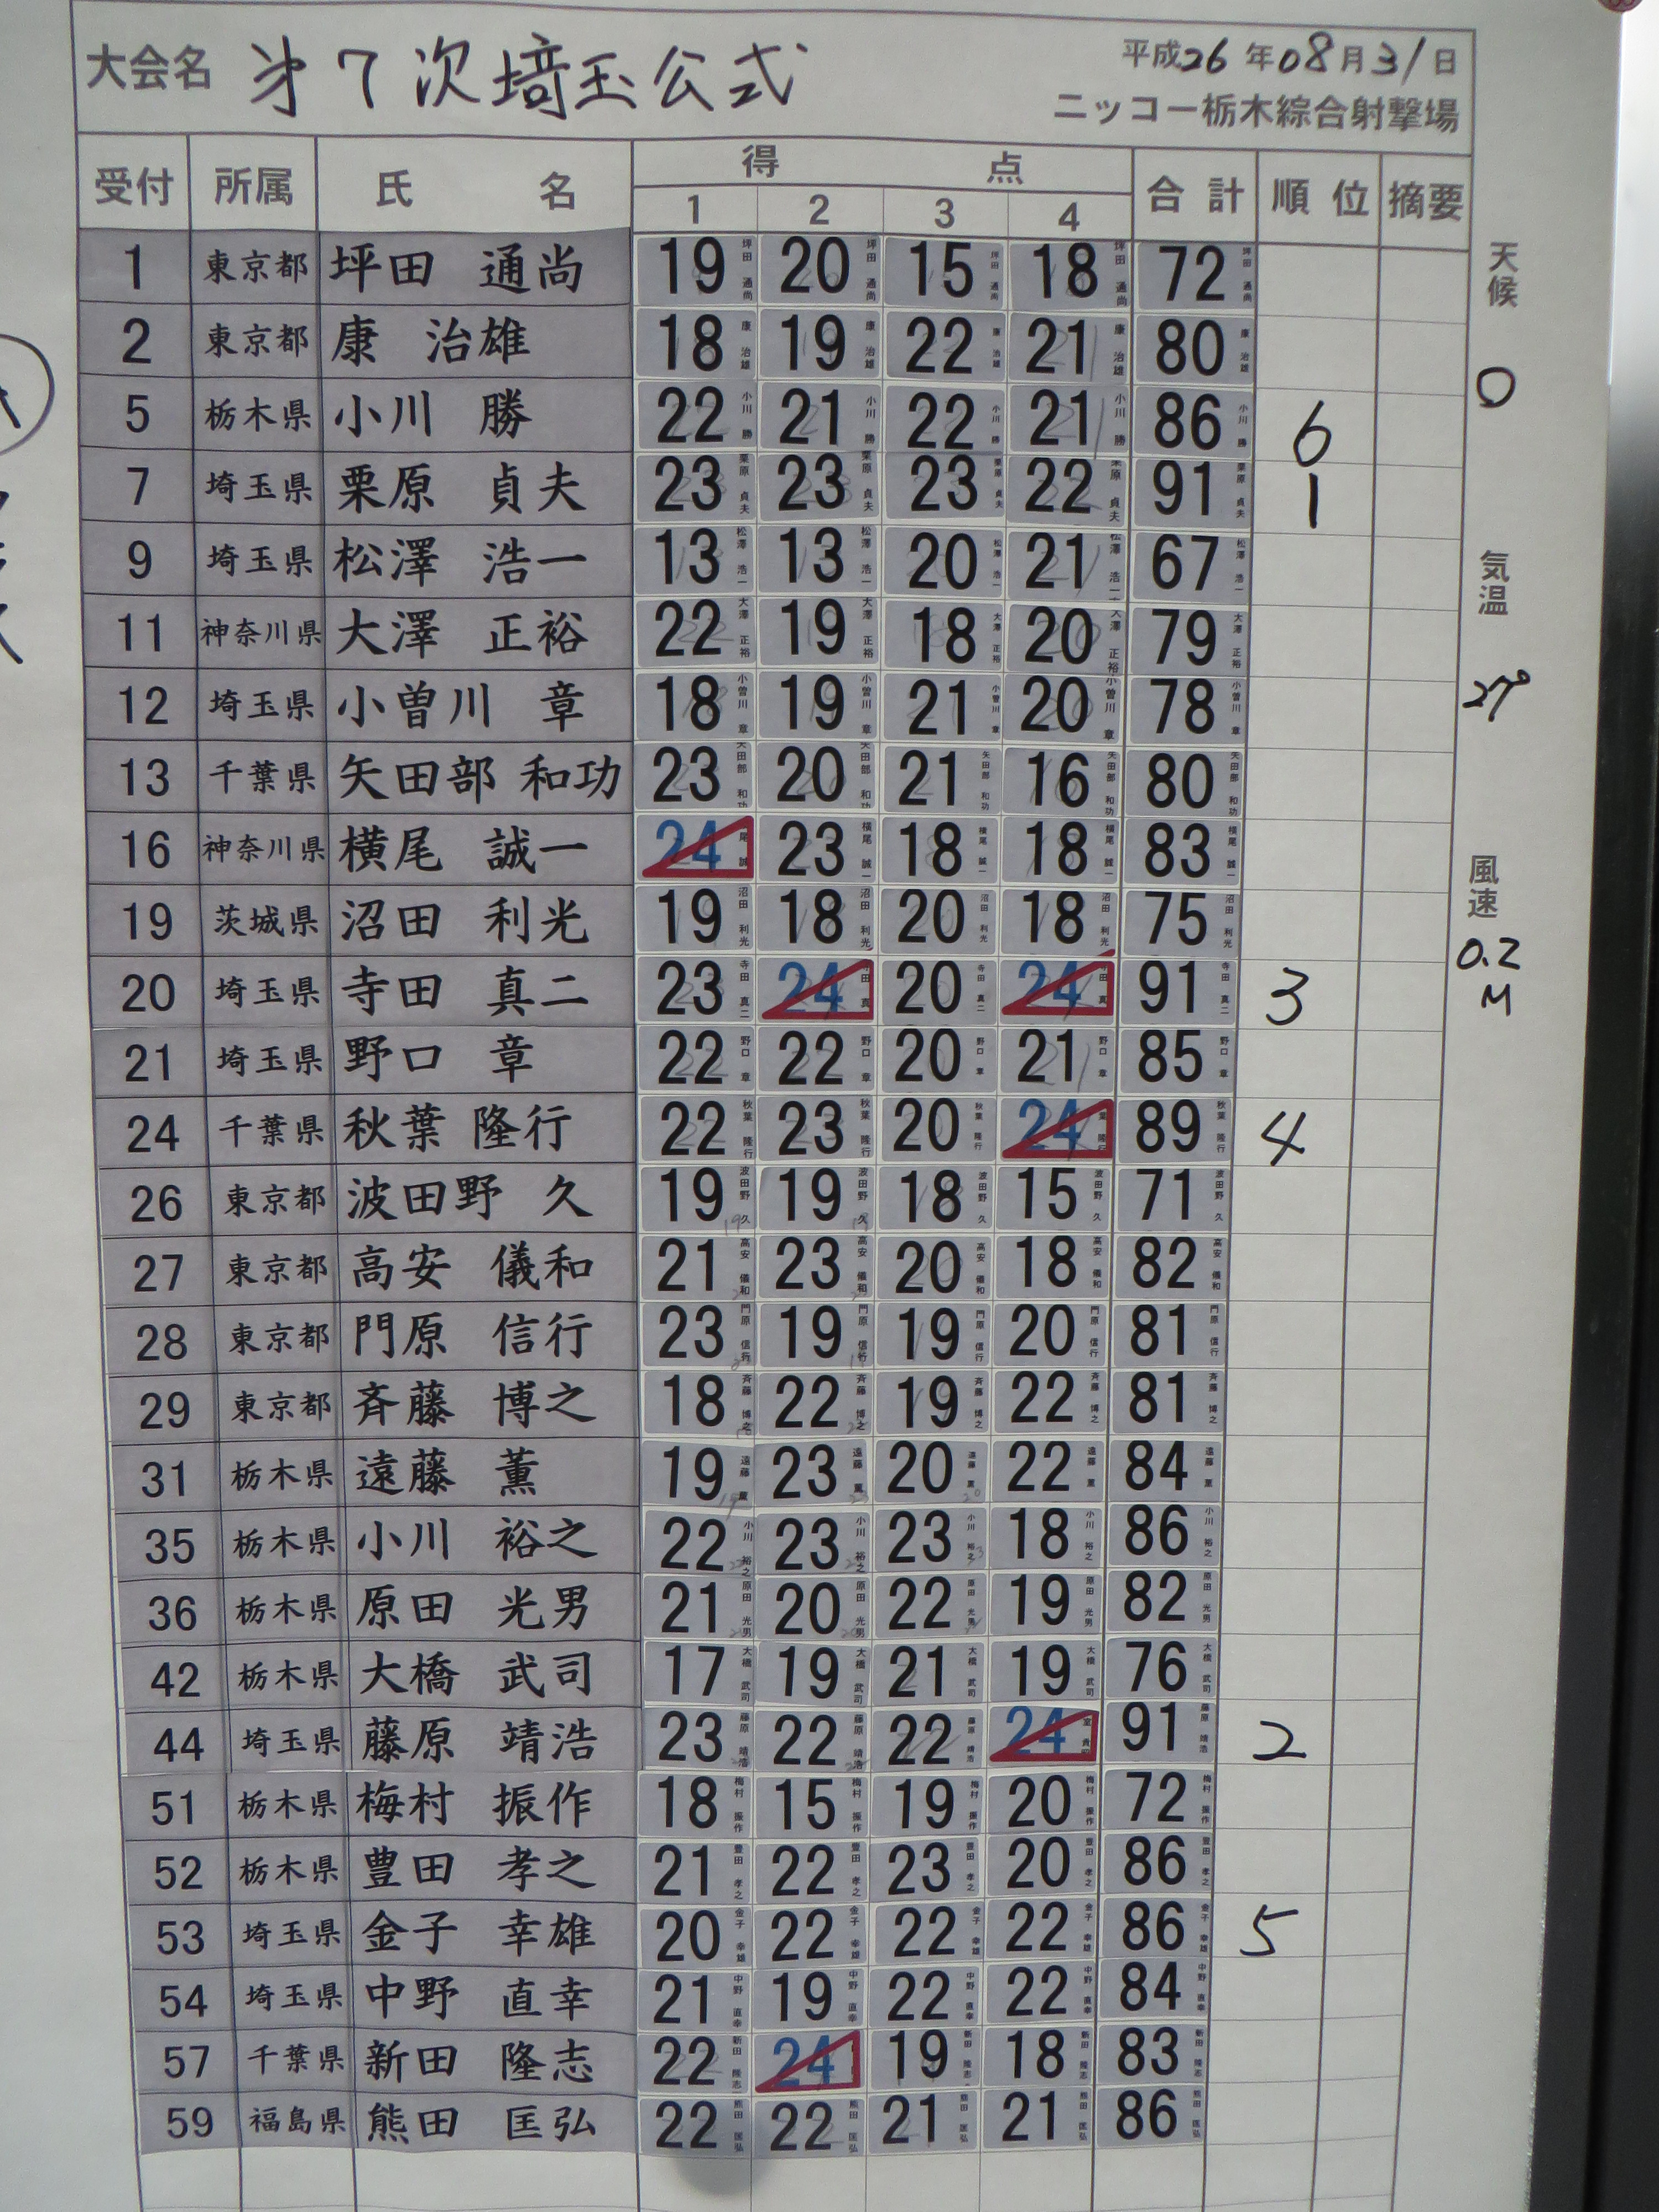 大会名 第7次埼玉公式 平成26年08月31日
ニッコー栃木綜合射撃場
受付 所属 氏名 得点 合計 順位 摘要
1 2 3 4
1 東京都 坪田 通尚 19 20 15 18 72
2 東京都 康 治雄 18 19 22 21 80
5 栃木県 小川 勝 22 21 22 21 86 6
7 埼玉県 栗原 貞夫 23 23 23 22 91 1
9 埼玉県 松澤 浩一 13 13 20 21 67
11 神奈川県 大澤 正裕 22 19 18 20 79
12 埼玉県 小曽川 章 18 19 21 20 78
13 千葉県 矢田部 和功 23 20 21 16 80
16 神奈川県 横尾 誠一 24 23 18 18 83
19 茨城県 沼田 利光 19 18 20 18 75
20 埼玉県 寺田 真二 23 24 20 24 91 3
21 埼玉県 野口 章 22 22 20 21 85
24 千葉県 秋葉 隆行 22 23 20 24 89 4
26 東京都 波田野 久 19 19 18 15 71
27 東京都 高安 儀和 21 23 20 18 82
28 東京都 門原 信行 23 19 19 20 81
29 東京都 斉藤 博之 18 22 19 22 81
31 栃木県 遠藤 薫 19 23 20 22 84
35 栃木県 小川 裕之 22 23 23 18 86
36 栃木県 原田 光男 21 20 22 19 82
42 栃木県 大橋 武司 17 19 21 19 76
44 埼玉県 藤原 靖浩 23 22 22 24 91 2
51 栃木県 梅村 振作 18 15 19 20 72
52 栃木県 豊田 孝之 21 22 23 20 86
53 埼玉県 金子 幸雄 20 22 22 22 86 5
54 埼玉県 中野 直幸 21 19 22 22 84
57 千葉県 新田 隆志 22 24 19 18 83
59 福島県 熊田 匡弘 22 22 21 21 86
天候
気温
27°
風速
0.2
M